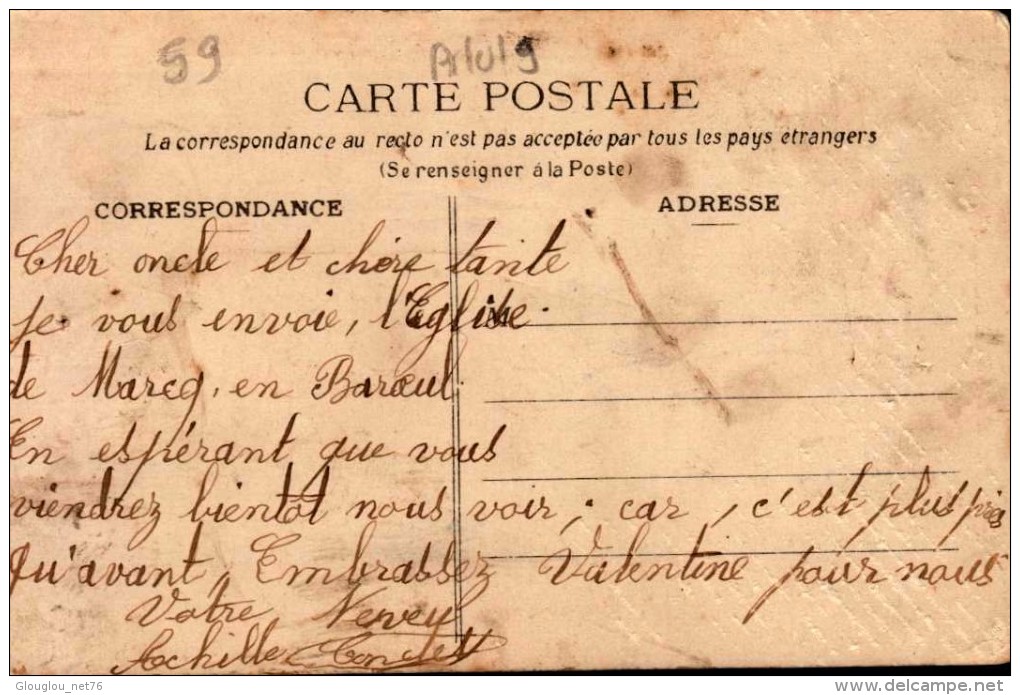 59
CARTE POSTALE
La correspondance au recto n'est pas acceptée par tous les pays étrangers
(Se renseigner á la Poste)
CORRESPONDANCE
ADRESSE
Cher oncle et chère tante
Je vous envoie, l'Eglise
de Marcq, en Barœul
En espérant que vous
viendrez bientôt nous voir ; car, c'est plus près
qu'avant, Embrassez Valentine pour nous
Votre Neveu
Achille
Glouglou_net76
delcampe.net